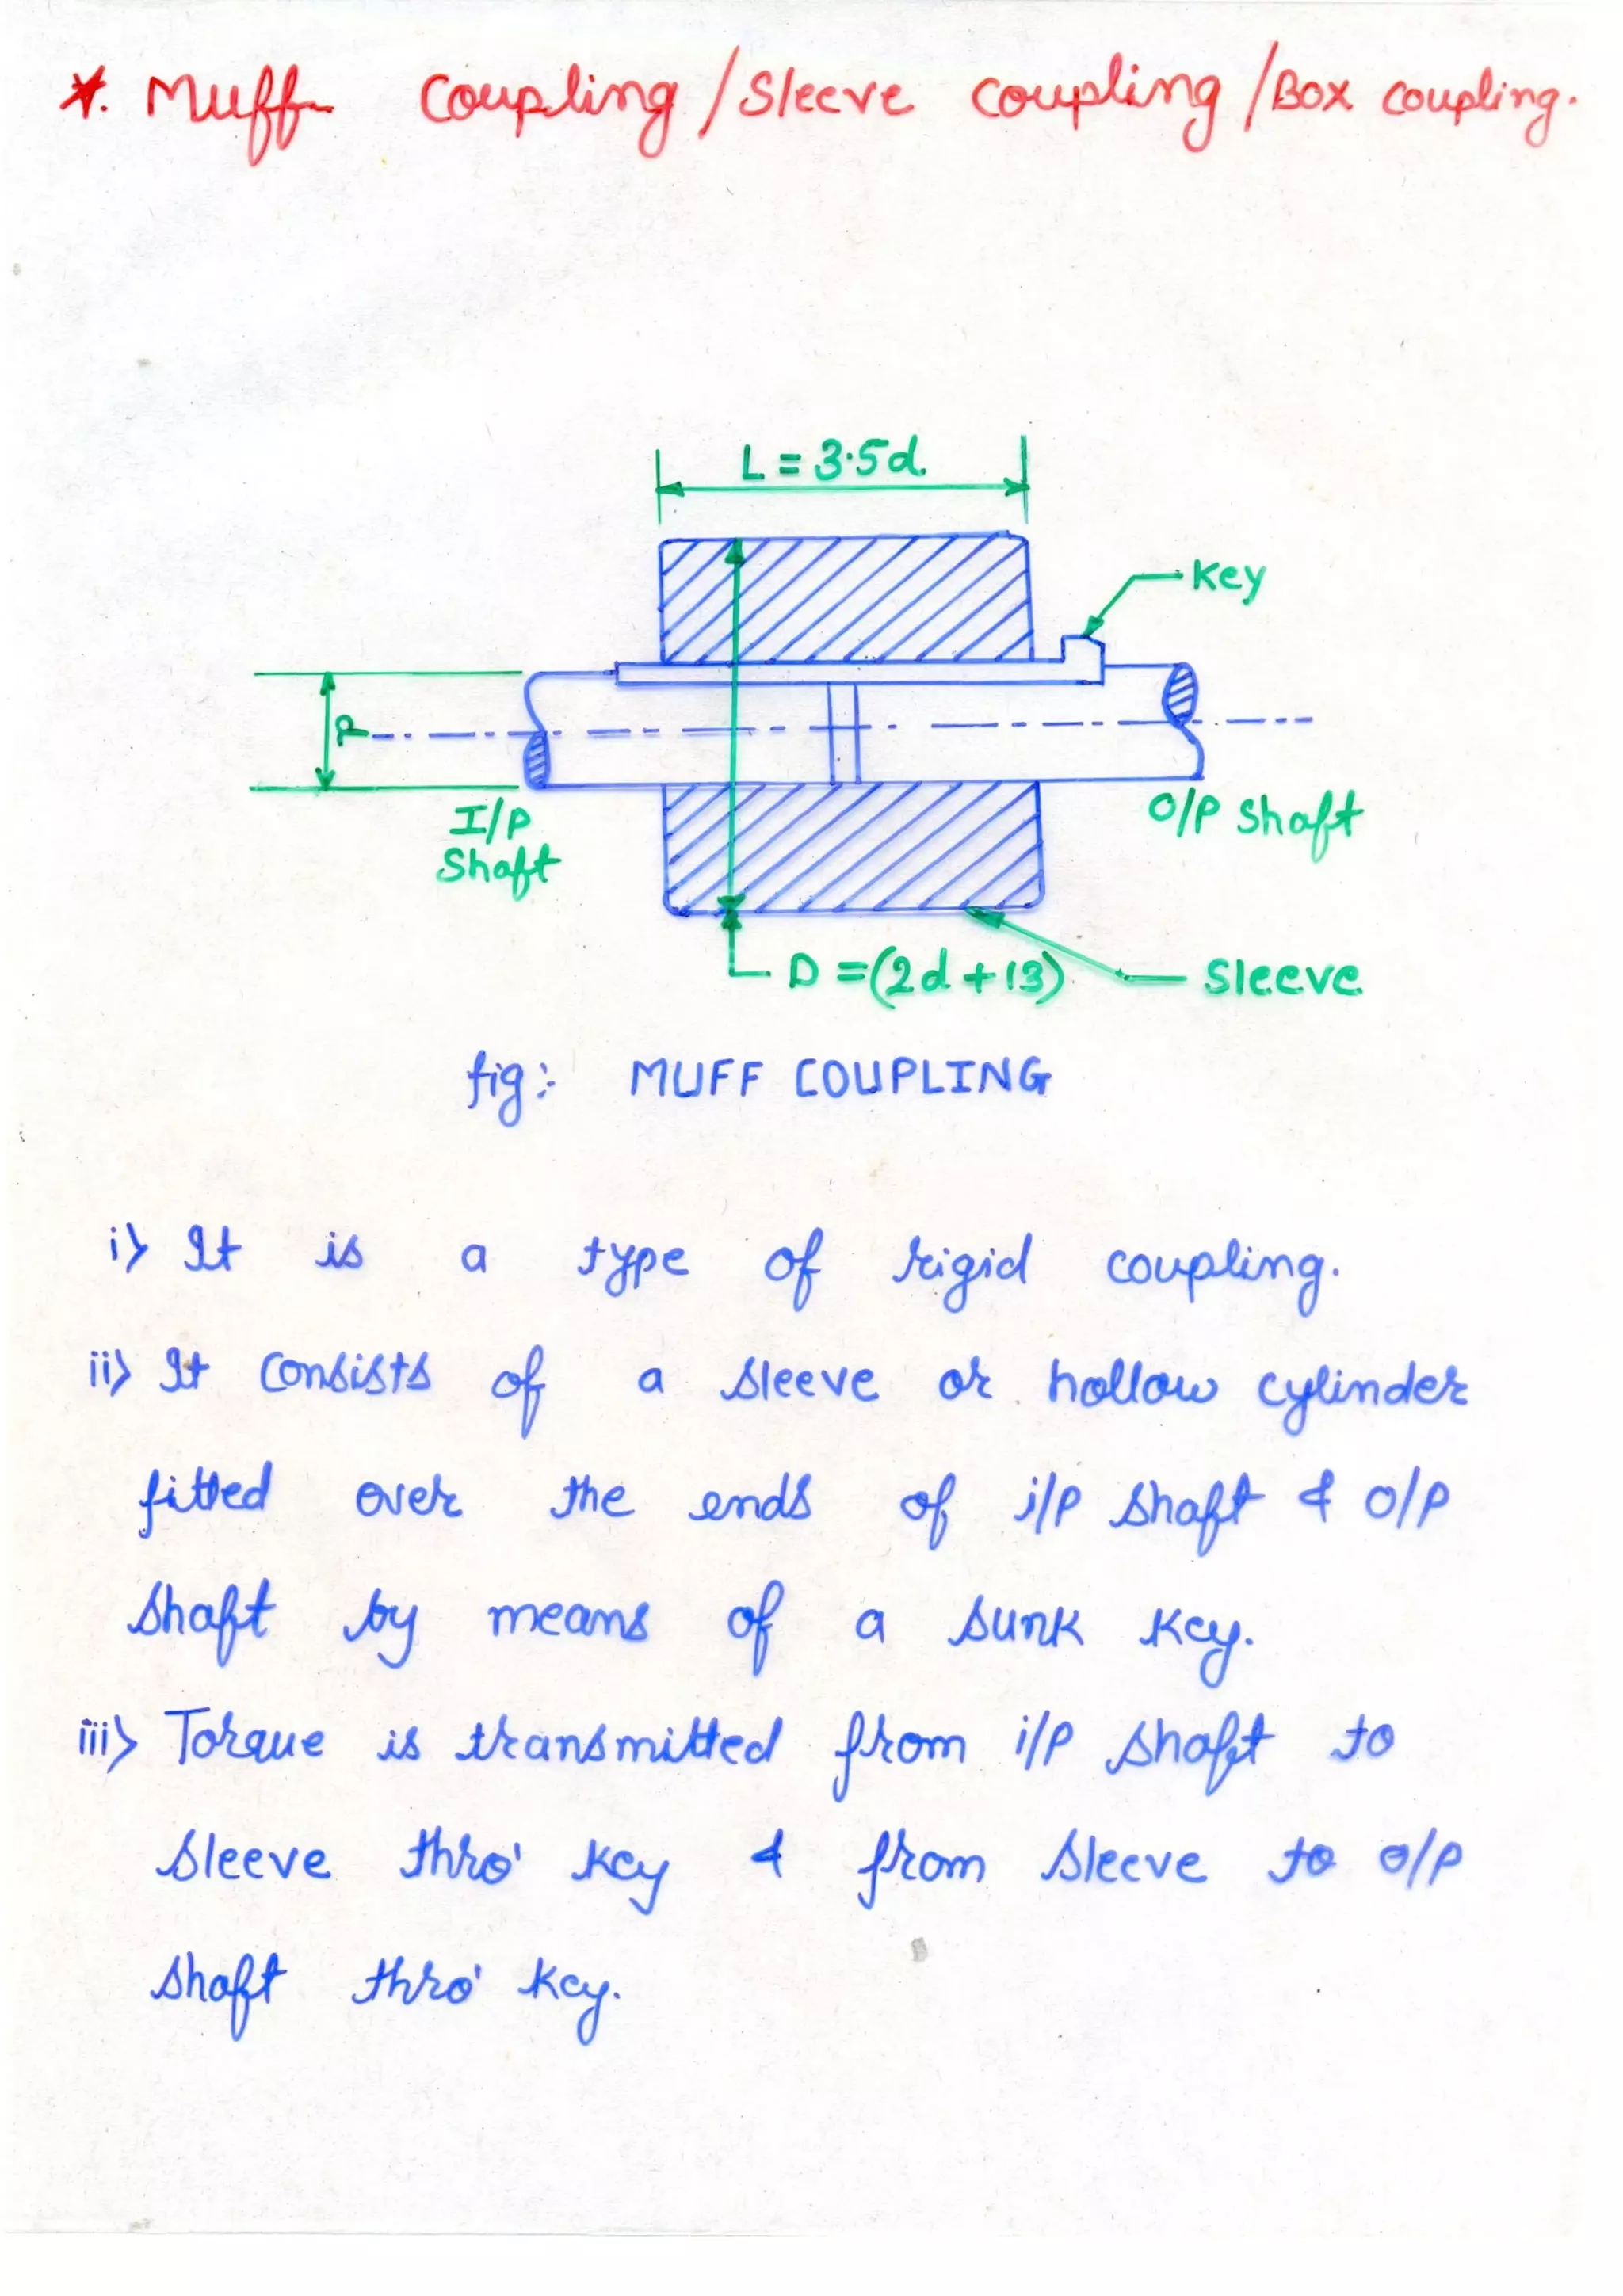 *. Muff Coupling / Sleeve coupling / Box coupling.
L = 3.5d
Key
d
I/P
Shaft
O/P Shaft
D = (2d + 13)
Sleeve
fig:- MUFF COUPLING
i) It is a type of rigid coupling.
ii) It consists of a sleeve or hollow cylinder
fitted over the ends of i/p shaft & o/p
shaft by means of a sunk key.
iii) Torque is transmitted from i/p shaft to
sleeve thro' key & from sleeve to o/p
shaft thro' key.